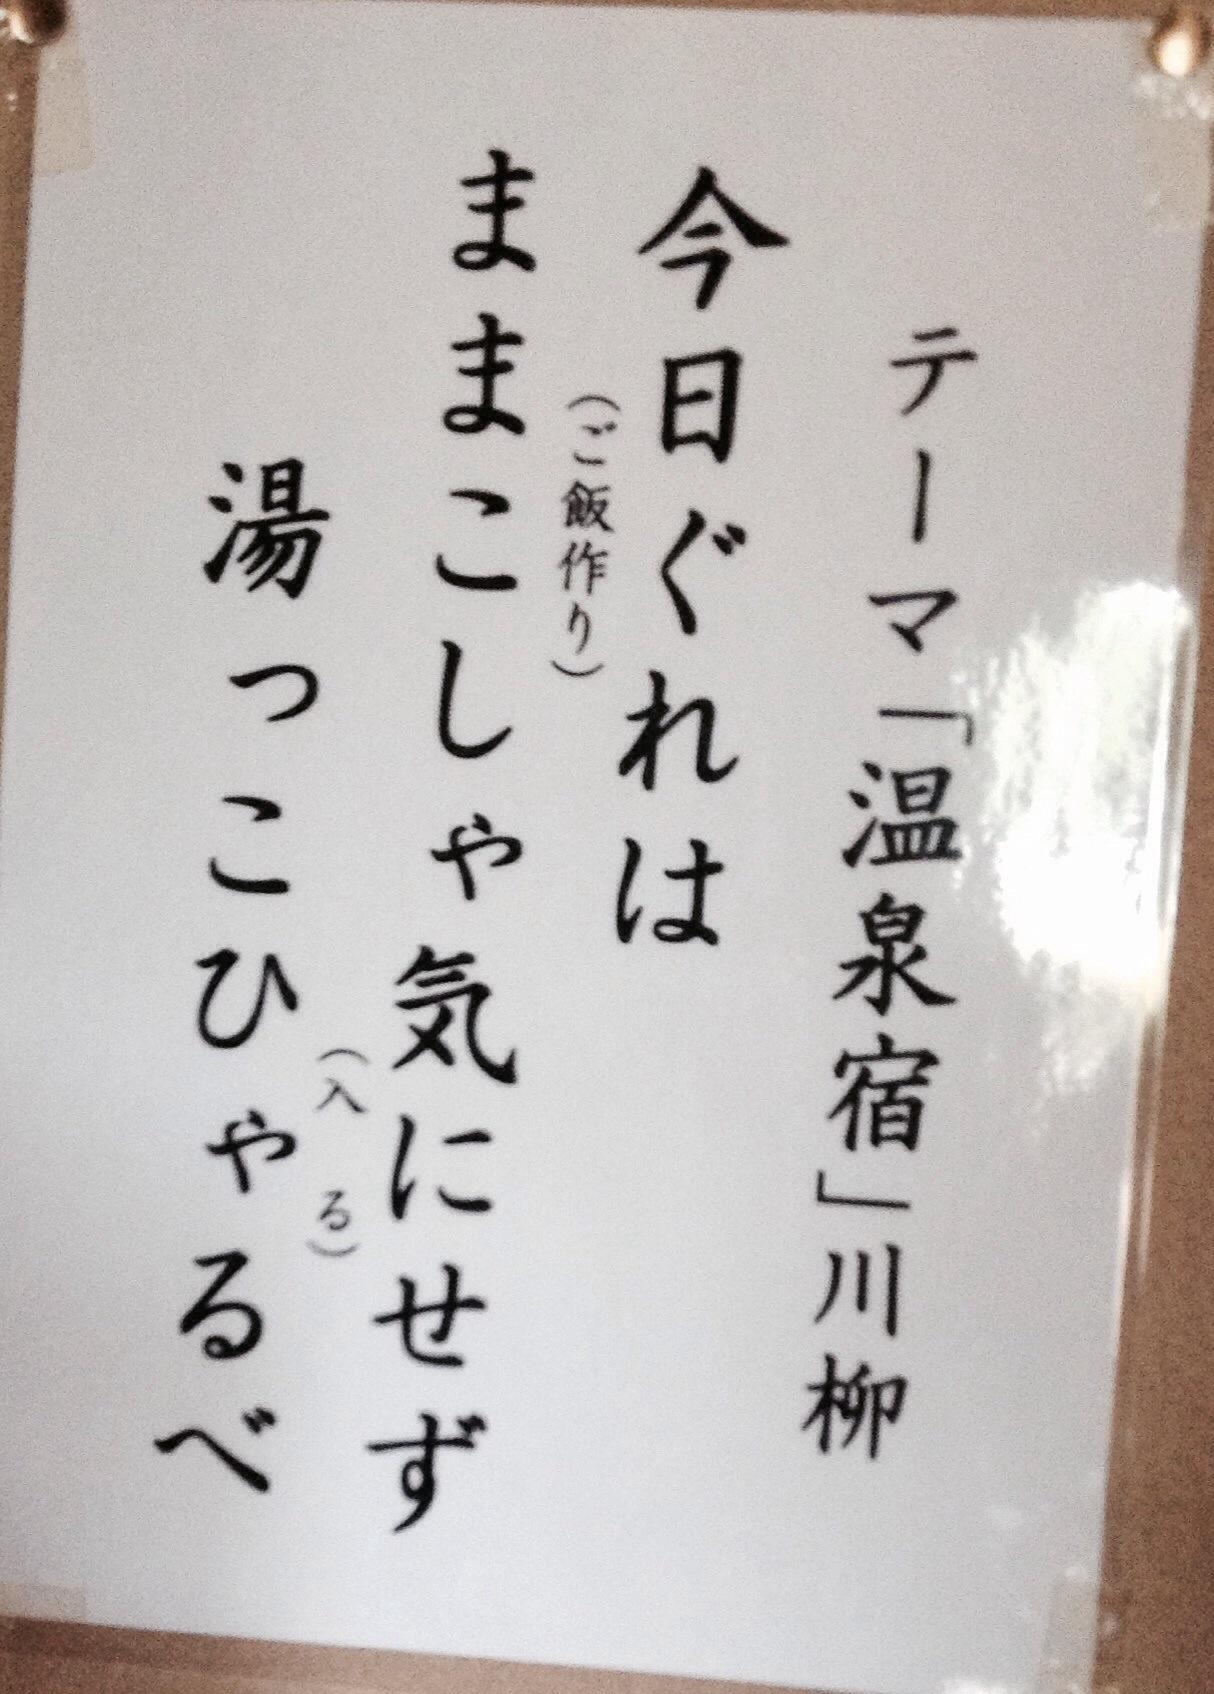 テーマ「温泉宿」川柳
今日ぐれは
(ご飯作り)
ままこしゃ気にせず
(入る)
湯っこひゃるべ